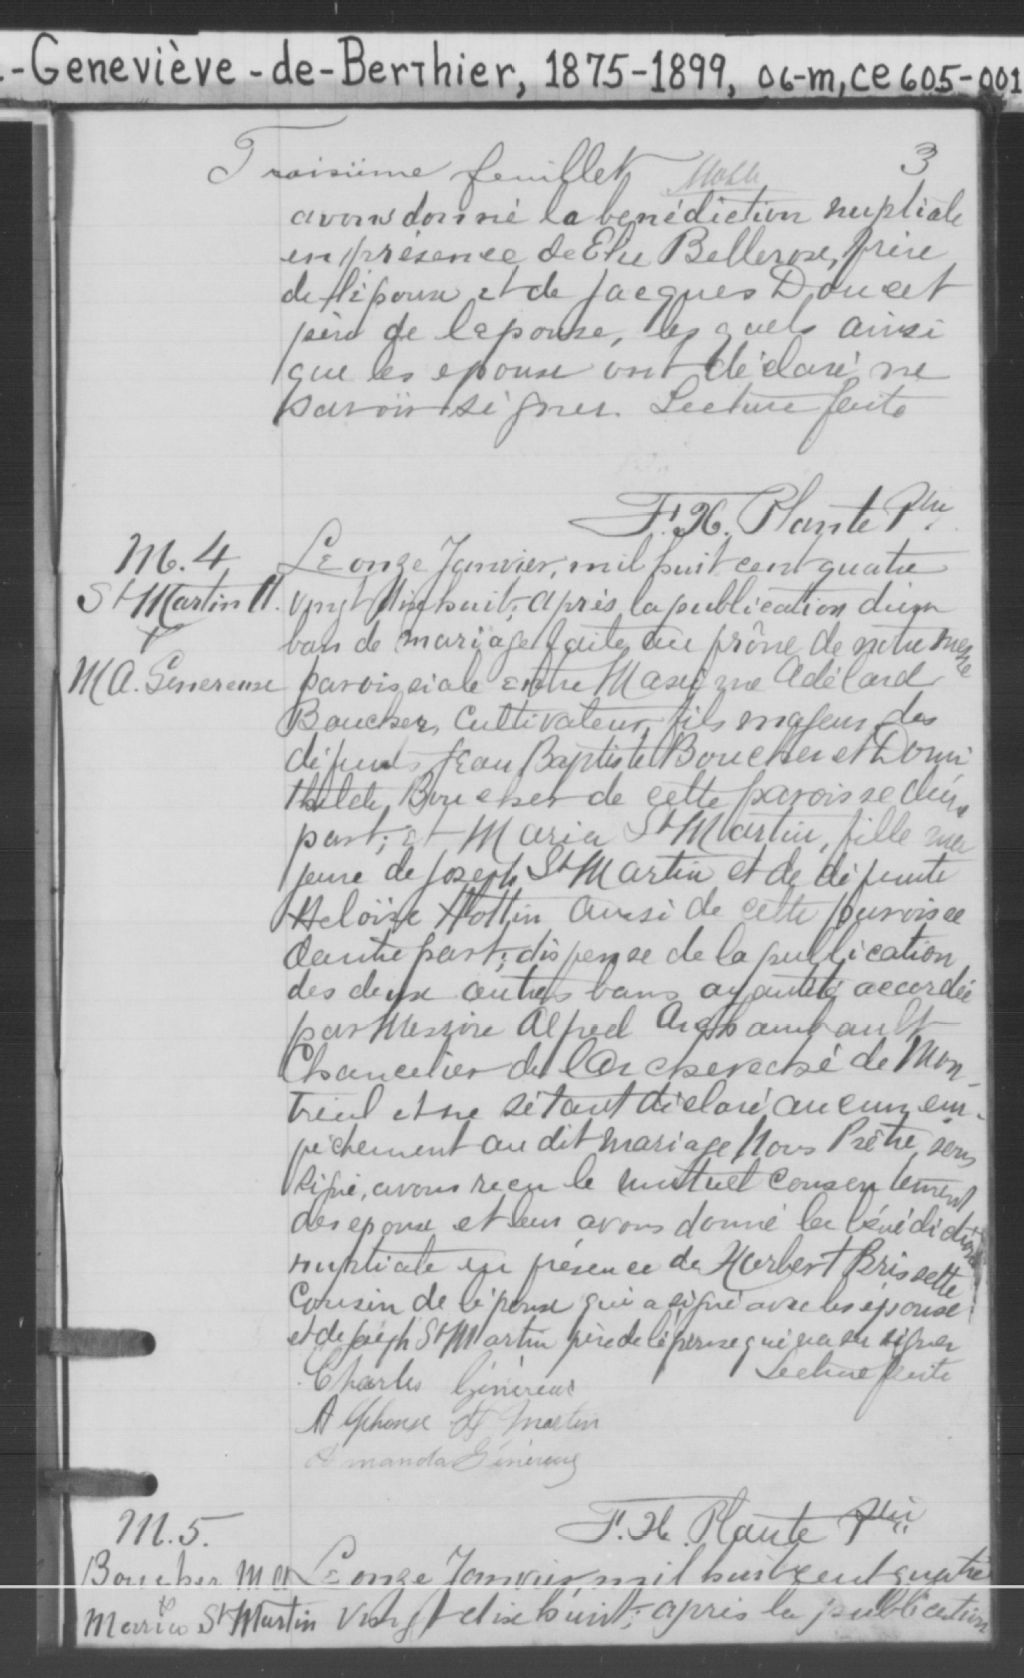 .-Geneviève-de-Berthier, 1875-1899, 06-m, ce 605-001
Troisiime feuillet 3
avons donné la benédiction nuptiale
en présence de Elie Bellerose, frère
de l'époux et de Jacques Doucet
père de lepouse, lesquels ainsi
que les epoux ont déclaré ne
savoir signer. Lecture faite
F. X. Plante Ptre
M. 4
St Martin A.
&
M A. Genereux
Le onze Janvier, mil huit cent quatre
vingt dix huit, après la publication d'un
ban de mariage faite au prône de notre messe
paroissiale entre Maxime Adélard
Boucher, Cultivateur, fils majeur des
défunts Jean Baptiste Boucher et Domi
thilde Boucher de cette paroisse d'une
part; et Maria St Martin, fille ma
jeure de Joseph St Martin et de défunte
Héloïse Hottin aussi de cette paroisse
dautre part; dispense de la publication
des deux autres bans ayant été accordée
par Messire Alfred Archambault
Chancelier de l'Archevêché de Mon-
tréal et ne s'étant déclaré aucun em-
pêchement au dit mariage Nous Prêtre sous
signé, avons reçu le mutuel consentement
des epoux et leur avons donné la bénédiction
nuptiale en présence de Herbert Brissette
Cousin de l'époux qui a signé avec les époux
et de Joseph St Martin père de l'épouse qui n'a su signer
Lecture faite
Charles Généreux
Alphonse St Martin
Amanda Généreux
F. X. Plante Ptre
M. 5.
Boucher M A
&
Maria St Martin
Le onze Janvier mil huit cent quatre
vingt dix huit; après la publication